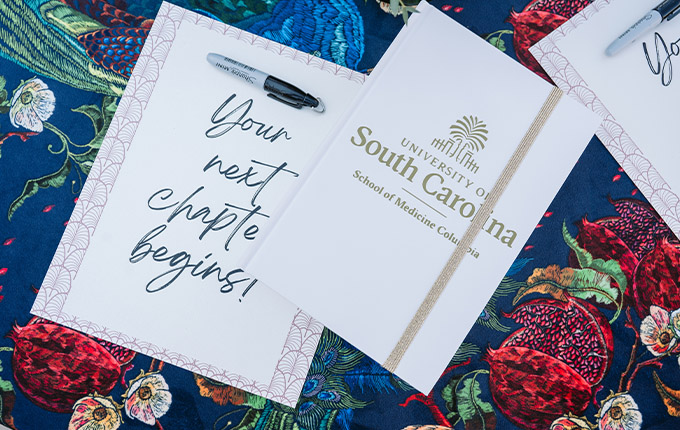 Your
next
chapte
begins!
Sharpie
UNIVERSITY OF
South Carolina
School of Medicine Columbia
You